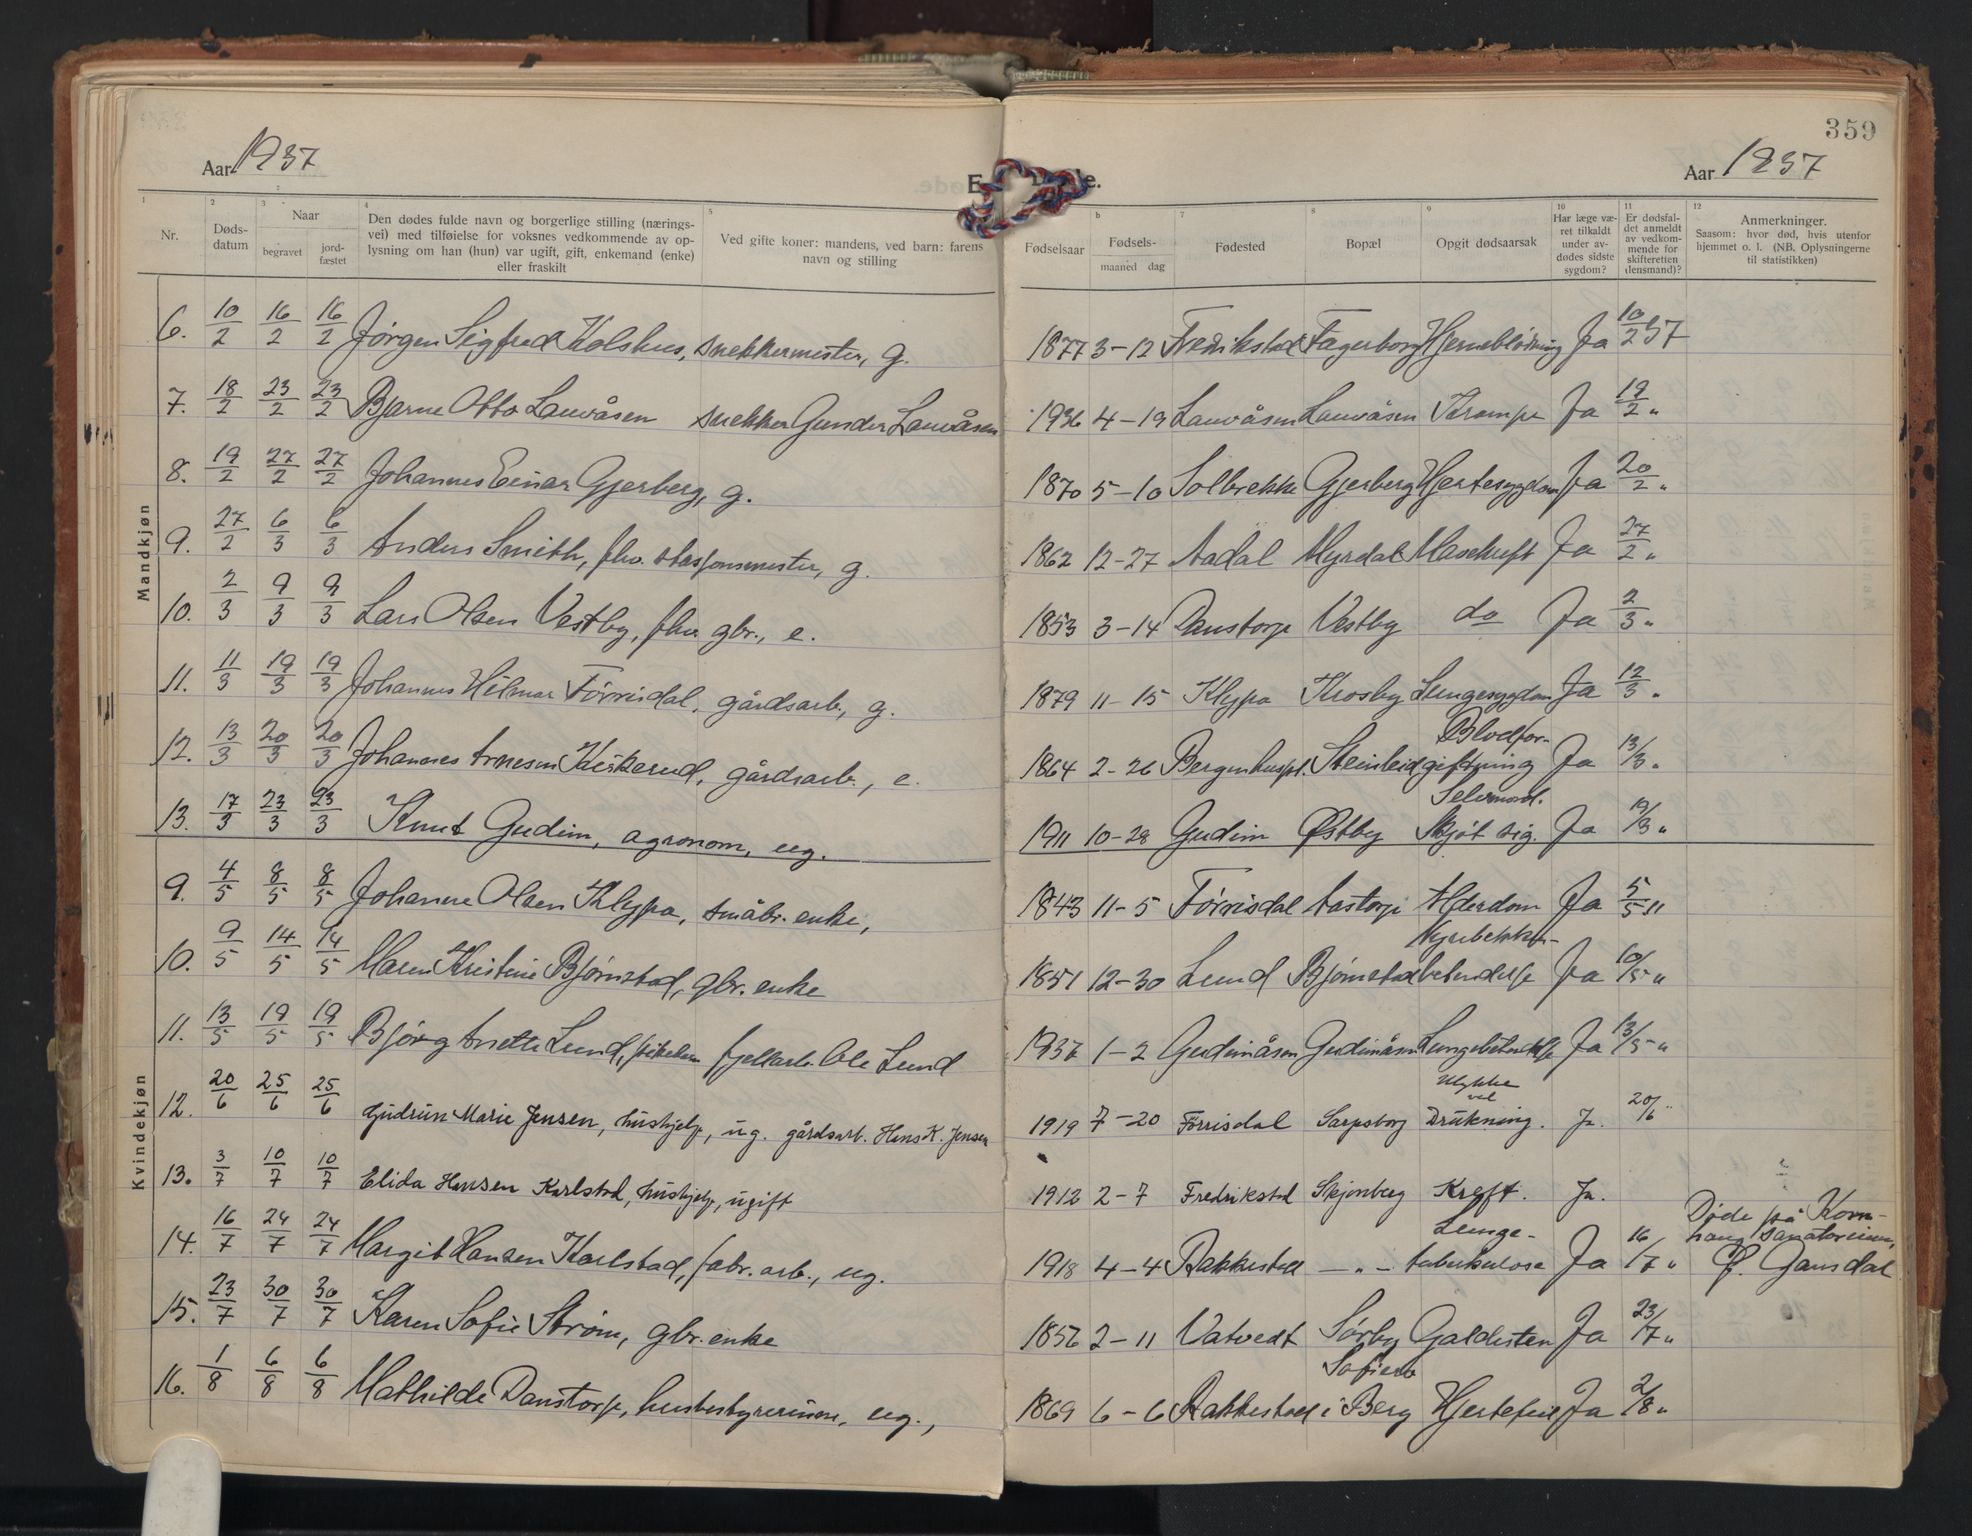 359
Aar 1937
Aar 1937
E. Døde.
1 Nr.
2 Døds-datum
3 Naar begravet jord-fæstet
4 Den dødes fulde navn og borgerlige stilling (nærings-vei) med tilføielse for voksnes vedkommende av op-lysning om han (hun) var ugift, gift, enkemand (enke) eller fraskilt
5 Ved gifte koner: mandens, ved barn: farens navn og stilling
Fødselsaar
b Fødsels- maaned dag
7 Fødested
8 Bopæl
9 Opgit dødsaarsak
10 Har læge væ-ret tilkaldt under av-dødes sidste sygdom?
11 Er dødsfal-det anmeldt av vedkom-mende for skifteretten (lensmand)?
12 Anmerkninger. Saasom: hvor død, hvis utenfor hjemmet o. l. (NB. Oplysningerne til statistikken)
Mandkjøn
6. 10/2 16/2 16/2 Jørgen Sigfred Kolshus, snekkermester, g. 1877 3-12 Fredrikstad Fagerborg Hjerneblødning Ja 10/2 37
7. 18/2 23/2 23/2 Bjarne Otto Lauvåsen snekker Gunder Lauvåsen 1936 4-19 Lauvåsen Lauvåsen Krampe Ja 19/2 "
8. 19/2 27/2 27/2 Johannes Einar Gjerberg, g. 1870 5-10 Solbrekke Gjerberg Hjertesygdom Ja 20/2 "
9. 27/2 6/3 6/3 Anders Smith, fhv. stasjonsmester, g. 1862 12-27 Aadal Myrdal Mavekreft Ja 27/2 "
10. 2/3 9/3 9/3 Lars Olsen Vestby, fhv. gbr., e. 1853 3-14 Danstorp Vestby do Ja 2/3 "
11. 11/3 19/3 19/3 Johannes Hilmar Førrisdal, gårdsarb., g. 1879 11-15 Klypa Krosby Lungesygdom Ja 12/3 "
12. 13/3 20/3 20/3 Johannes Arnesen Kiskerud, gårdsarb., e. 1864 2-26 Bergenhuspl. Blodfor-giftning Ja 13/3 "
13. 17/3 23/3 23/3 Knut Gudim, agronom, ug. 1911 10-28 Gudim Østby Selvmord. Skjøt sig. Ja 19/3 "
Kvindekjøn
9. 4/5 8/5 8/5 Johanne Olsen Klypa, småbr. enke, 1843 11-5 Førrisdal Aastorp Alderdom Ja 5/5 "
10. 9/5 14/5 14/5 Maren Kristine Bjørnstad, gbr. enke 1851 12-30 Lund Bjørnstad Nyrebekken-betendelse Ja 10/5 "
11. 13/5 19/5 19/5 Bjørg Anette Lund, pikebarn fjellarb. Ole Lund 1937 1-2 Gudimåsen Gudimåsen Lungebetendelse Ja 13/5 "
12. 20/6 25/6 25/6 Gudrun Marie Jensen, hushjelp, ug. gårdsarb. Hans K. Jensen 1919 7-20 Førrisdal Sarpsborg Ulykke ved Drukning. Ja. 20/6 "
13. 3/7 10/7 10/7 Elida Hansen Karlstad, hushjelp, ugift 1912 2-7 Fredrikstad Skjønberg Kreft. Ja.
14. 16/7 24/7 24/7 Margit Hansen Karlstad, fabr. arb., ug. 1918 4-4 Rakkestad - " - Lunge-tuberkulose Ja 16/7 " Døde på Korn-haug sanatorium, P. Gausdal
15. 23/7 30/7 30/7 Karen Sofie Strøm, gbr. enke 1856 2-11 Vatvedt Sørby Galdesten Ja 23/7 "
16. 1/8 6/8 6/8 Mathilde Danstorp, husbestyrerinne, ug., 1869 6-6 Rakkestad Sofiero i Berg Hjertefeil Ja 2/8 "